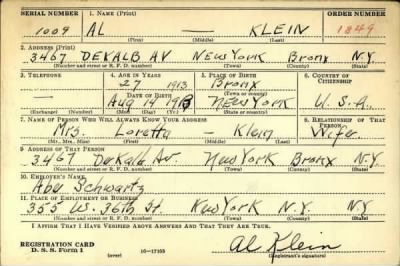 SERIAL NUMBER 1. NAME (Print) ORDER NUMBER
1009 AL — KLEIN 1849
(First) (Middle) (Last)
2. ADDRESS (Print)
3467 DEKALB AV NEW YORK Bronx N.Y.
(Number and street or R. F. D. number) (Town) (County) (State)
3. TELEPHONE 4. AGE IN YEARS 5. PLACE OF BIRTH 6. COUNTRY OF CITIZENSHIP
— 27 1913 Bronx
DATE OF BIRTH (Town or county)
Aug 14 1913 NEW YORK U.S.A.
(Exchange) (Number) (Mo.) (Day) (Yr.) (State or country)
7. NAME OF PERSON WHO WILL ALWAYS KNOW YOUR ADDRESS 8. RELATIONSHIP OF THAT PERSON
Mrs. Loretta — Klein Wife.
(Mr., Mrs., Miss) (First) (Middle) (Last)
9. ADDRESS OF THAT PERSON
3467 DeKalb Av. New York Bronx N.Y.
(Number and street or R. F. D. number) (Town) (County) (State)
10. EMPLOYER'S NAME
Abe Schwartz
11. PLACE OF EMPLOYMENT OR BUSINESS
355 W. 36th St. New York N.Y. N.Y.
(Number and street or R. F. D. number) (Town) (County) (State)
I AFFIRM THAT I HAVE VERIFIED ABOVE ANSWERS AND THAT THEY ARE TRUE.
REGISTRATION CARD
D. S. S. Form 1 (over) 16—17105 Al Klein
(Registrant's signature)